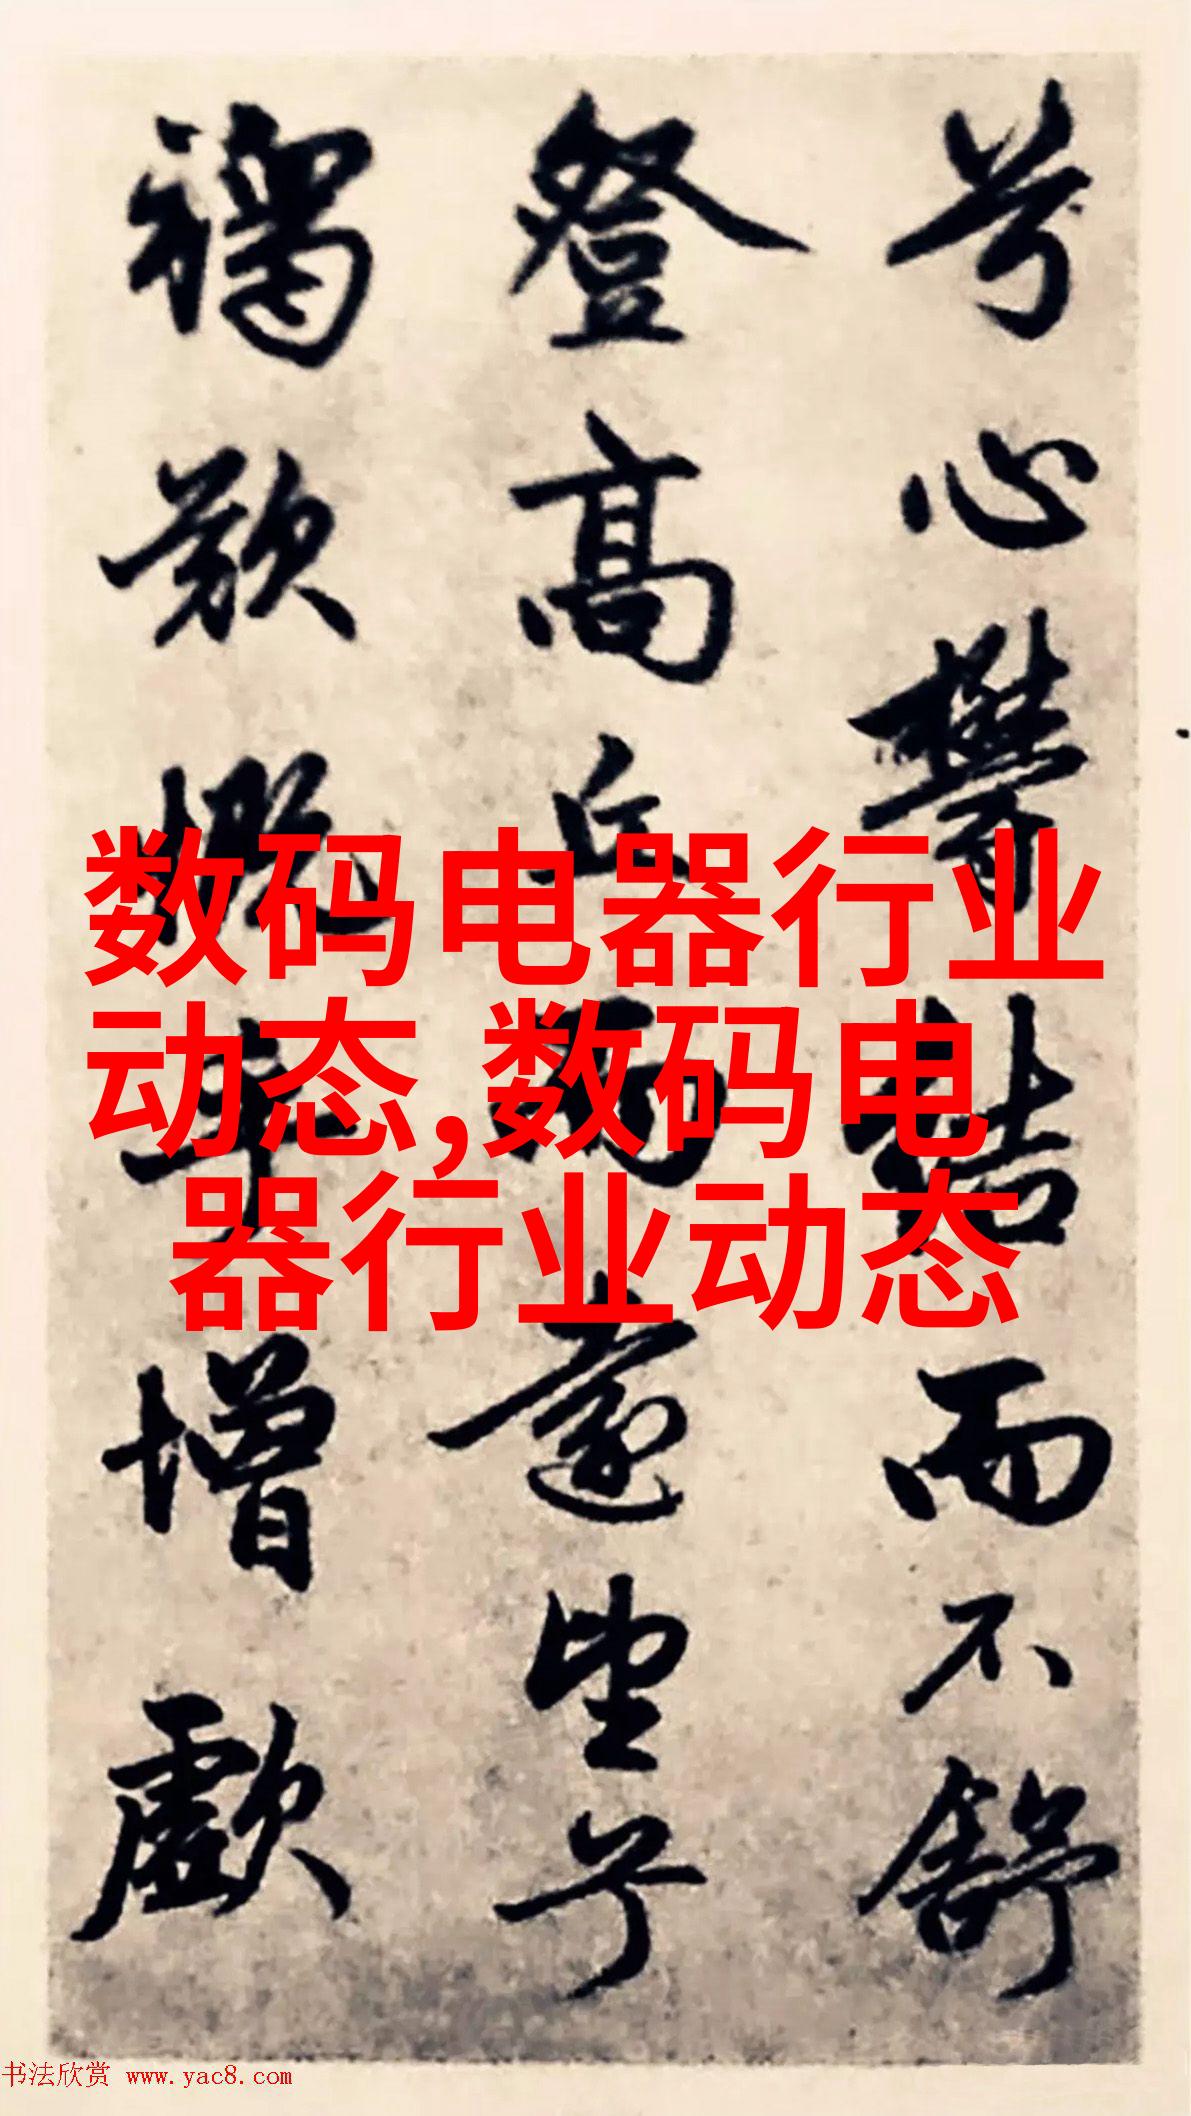 兮心鬱結而不舒
登高丘而遠望兮
歎慨增歔
数码电器行业
动态,数码电
器行业动态
书法欣赏 www.yac8.com